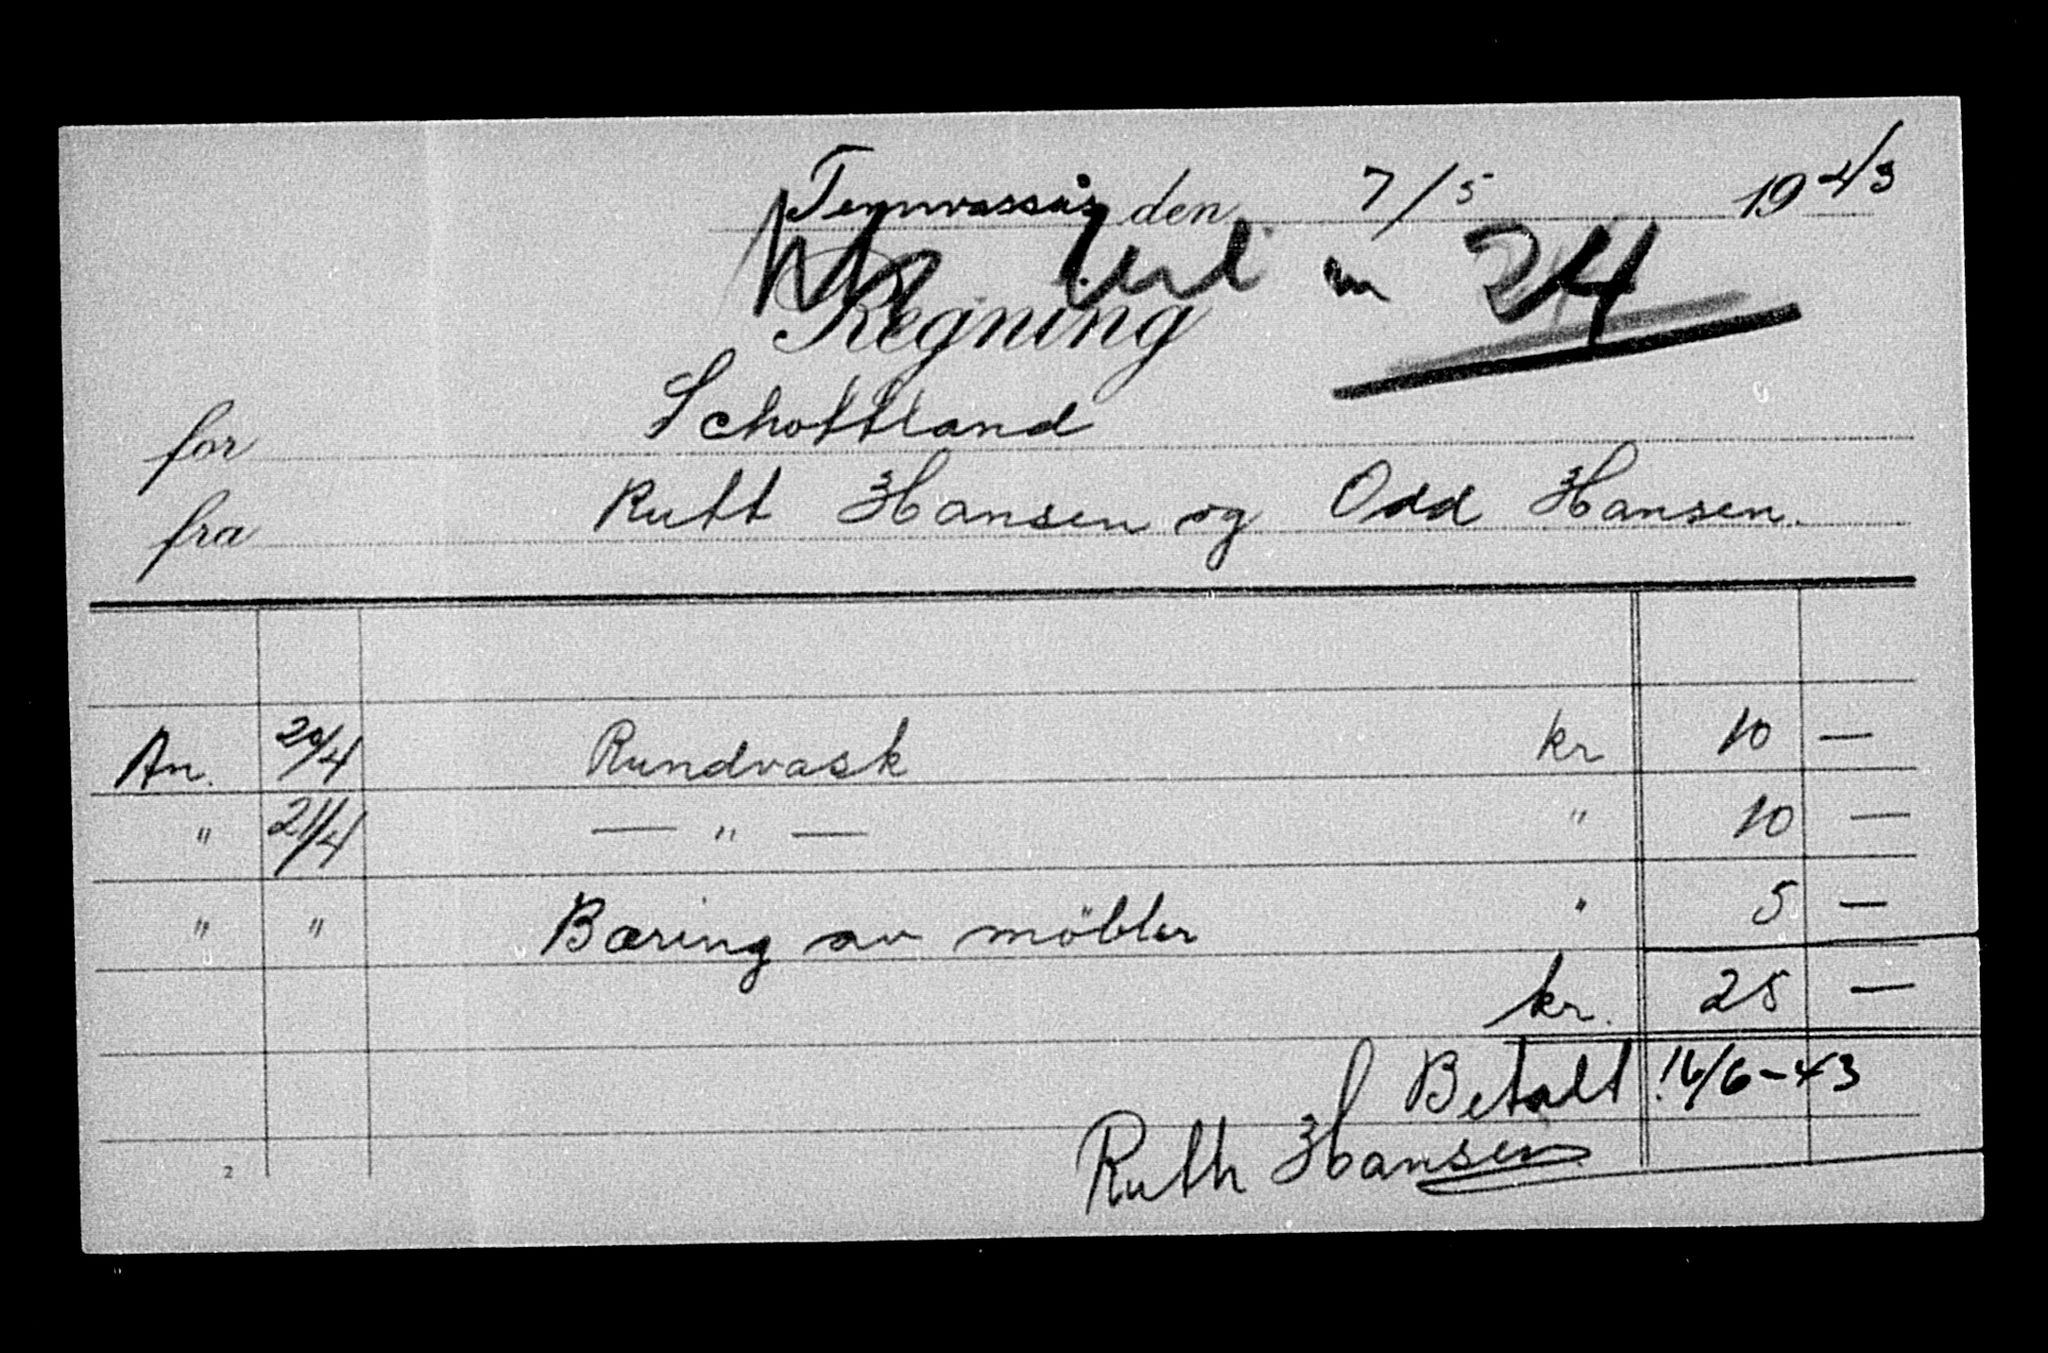 Tennvassås den 7/5 1943
24
Regning
for Schottland
fra Rutt Hansen og Odd Hansen.
An. 20/4 Rundvask kr 10 —
" 21/4 — " — " 10 —
" " Bæring av möbler " 5 —
kr. 25 —
Betalt 16/6-43
Ruth Hansen
2